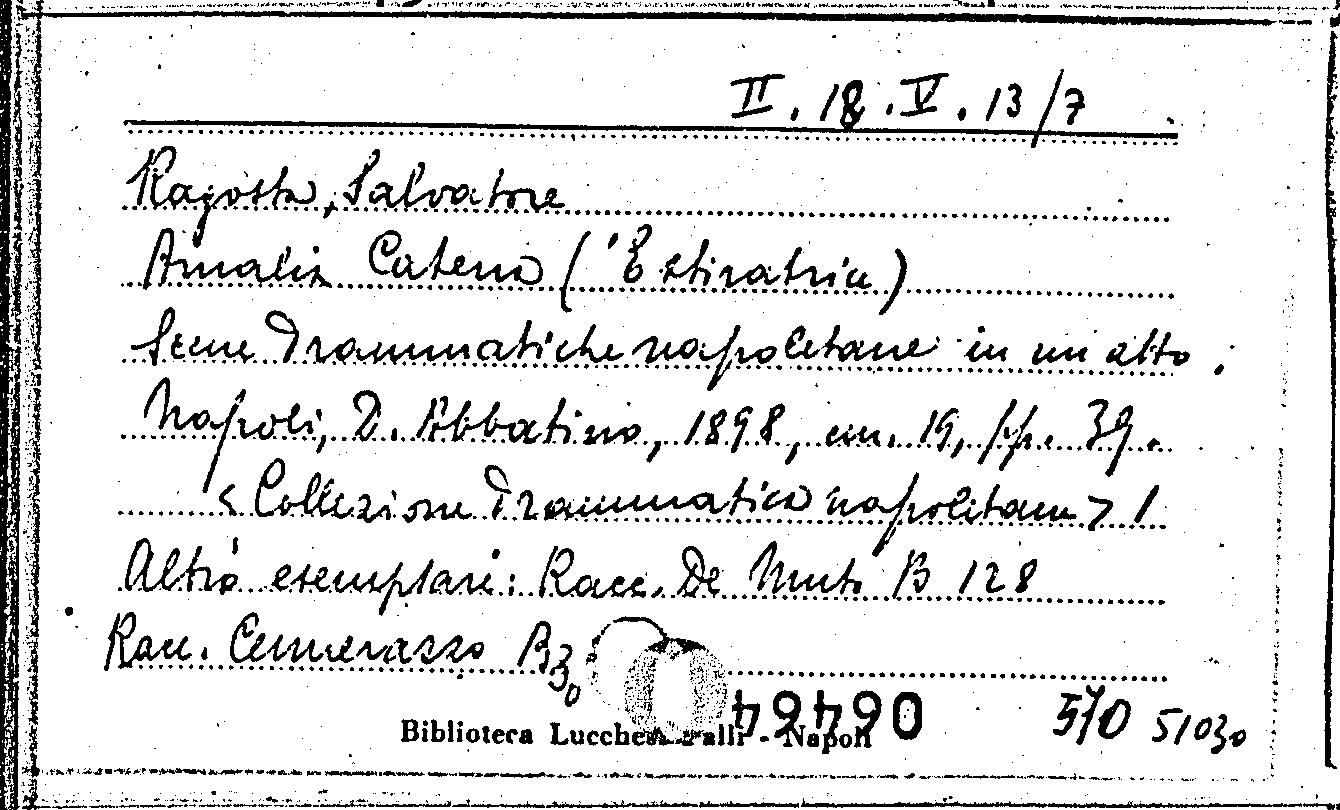 II. 18. V. 13/7
Ragosta, Salvatore
Amalia Catena ('E stiratrice)
Scene drammatiche napoletane in un atto.
Napoli, D. Abbatino, 1898, cm. 19, pp. 39.
<Collezione drammatica napoletana> 1
Altri esemplari: Racc. De Muto B 128
Racc. Cennerazzo B 30
Biblioteca Lucchesi Palli - Napoli
570 51030